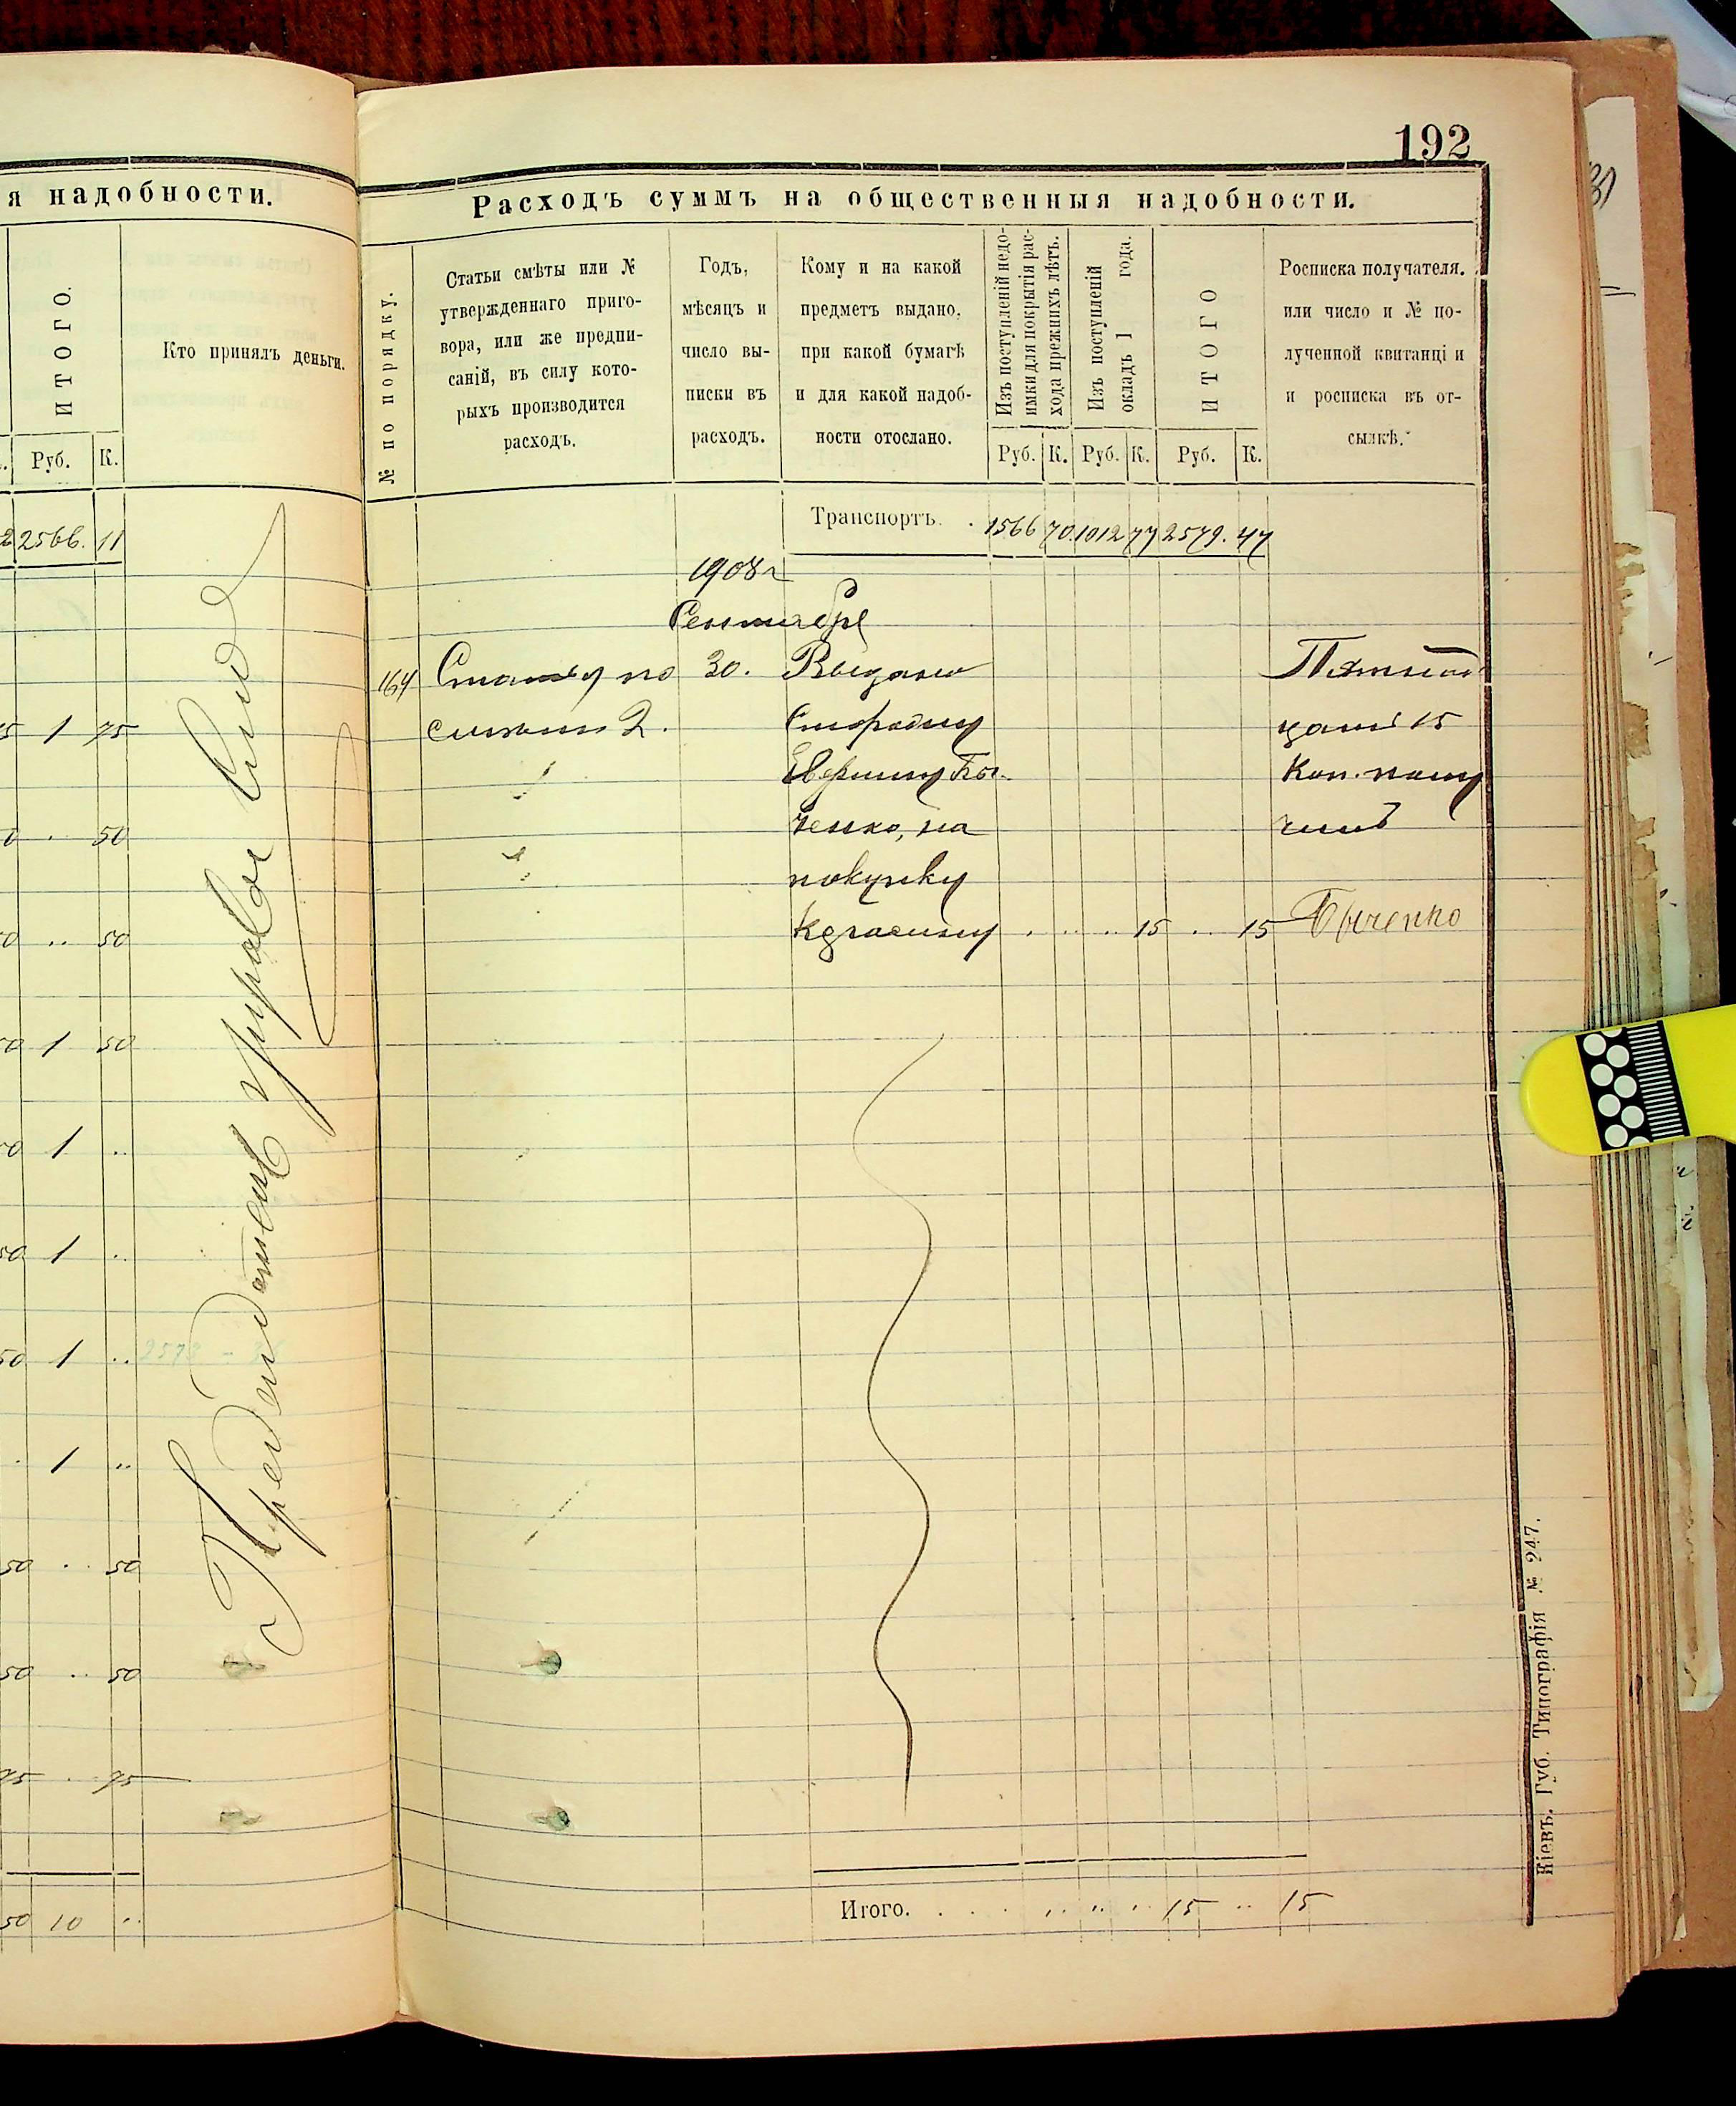 я надобности.
ИТОГО.
Кто принялъ деньги.
Руб. К.
2566. 11
1 75
50
50
1 50
1
1
1
1
50
50
75
50 10
192
Расходъ суммъ на общественныя надобности.
№ по порядку.
Статьи смѣты или №
утвержденнаго приго-
вора, или же предпи-
саній, въ силу кото-
рыхъ производится
расходъ.
Годъ,
мѣсяцъ и
число вы-
писки въ
расходъ.
Кому и на какой
предметъ выдано,
при какой бумагѣ
и для какой надоб-
ности отослано.
Изъ поступленій недо-
имки для покрытія рас-
хода прежнихъ лѣтъ.
Изъ поступленій
окладъ 1 года.
ИТОГО
Росписка получателя.
или число и № по-
лученной квитанці и
и росписка въ от-
сылкѣ.
Руб. К. Руб. К. Руб. К.
Транспортъ. 1566 70. 1012 77 2579. 47
1908 г
Сентября
164 30. Выдано
2.
ченко, на
покупку
керасину 15 15
15
Коп. полу
чилъ
Быченко
Итого. 15 15
Кіевъ. Губ. Типографія № 247.